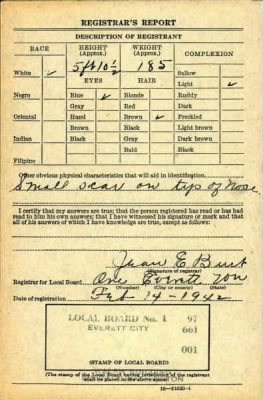 REGISTRAR'S REPORT
DESCRIPTION OF REGISTRANT
RACE HEIGHT (Approx.) WEIGHT (Approx.) COMPLEXION
5 ft 10 ½ 185
White ✓ Sallow
EYES HAIR Light ✓
Negro Blue ✓ Blonde Ruddy
Gray Red Dark
Oriental Hazel Brown ✓ Freckled
Brown Black Light brown
Indian Black Gray Dark brown
Bald Black
Filipino
Other obvious physical characteristics that will aid in identification
Small scar on tip of Nose
I certify that my answers are true; that the person registered has read or has had
read to him his own answers; that I have witnessed his signature or mark and that
all of his answers of which I have knowledge are true, except as follows:
E
(Signature of registrar)
Registrar for Local Board One Everett Wn
(Number) (City or county) (State)
Date of registration Feb 14-1942
LOCAL BOARD No. 1 97
EVERETT CITY 661
001
(STAMP OF LOCAL BOARD)
(The stamp of the Local Board having jurisdiction of the registrant
shall be placed in the above space)
16-21630-1